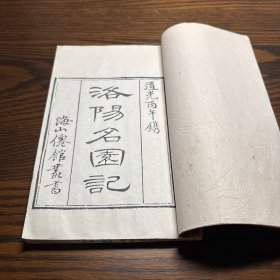 道光丙午鐫
洛陽名園記
海山僊館叢書